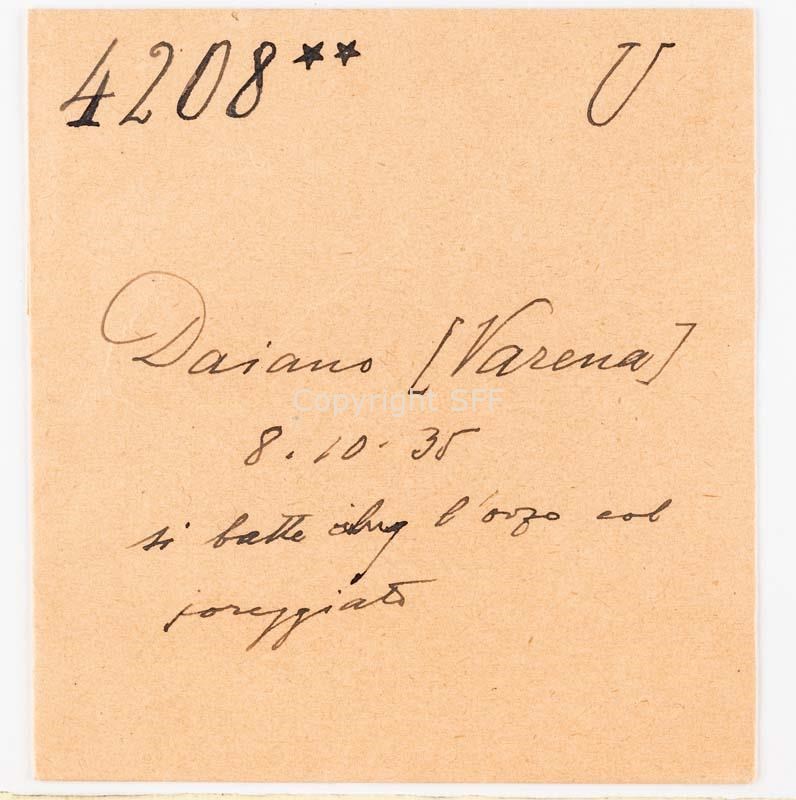 4208** U
Daiano [Varena]
Copyright SFF
8.10.35
si batte l'orzo col
coreggiato